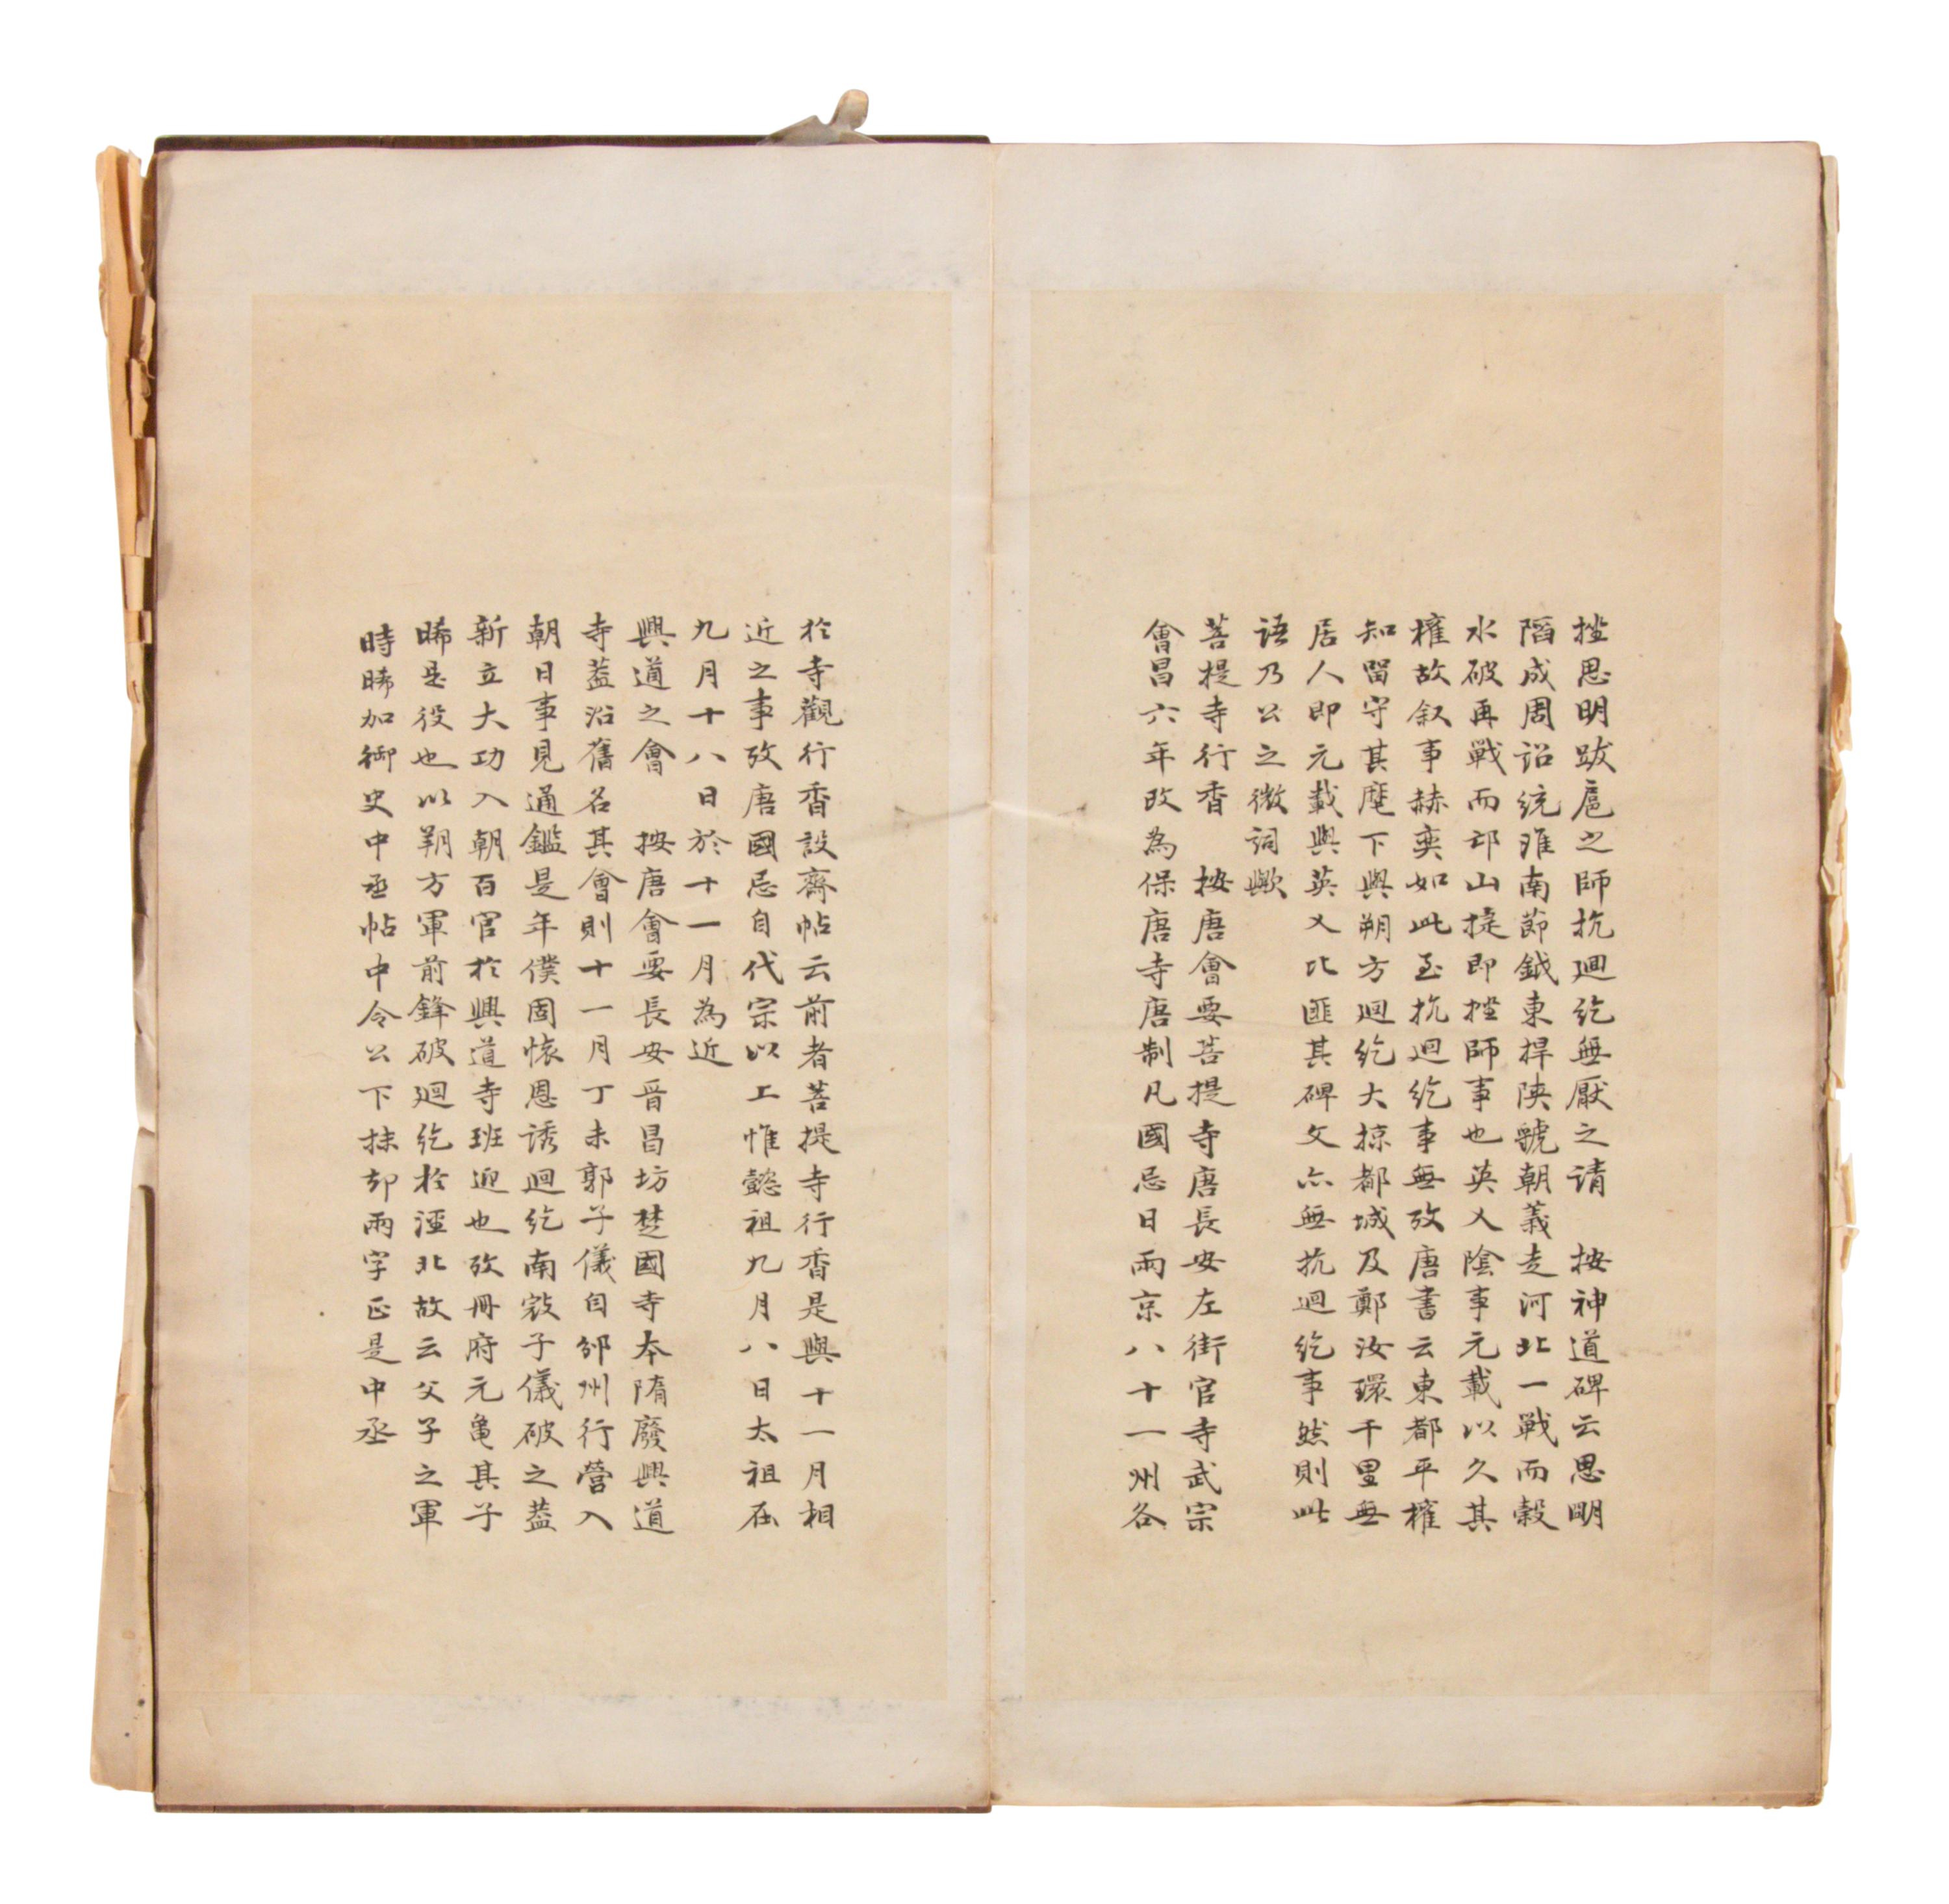 挫思明跋扈之師抗廻紇無厭之請　按神道碑云思明
陷成周詔統淮南節鉞東捍陝虢朝義走河北一戰而榖
水破再戰而邙山捷即挫師事也英乂陰事元載以久其
權故叙事赫奕如此至抗廻紇事無攷唐書云東都平權
知留守其麾下與朔方迴紇大掠都城及鄭汝環千里無
居人即元載與英乂比匪其碑文亦無抗迴紇事然則此
語乃公之微詞歟
菩提寺行香　按唐會要菩提寺唐長安左街官寺武宗
會昌六年改為保唐寺唐制凡國忌日兩京八十一州各
於寺觀行香設齋帖云前者菩提寺行香是與十一月相
近之事攷唐國忌自代宗以上惟懿祖九月八日太祖在
九月十八日於十一月為近
興道之會　按唐會要長安晉昌坊楚國寺本隋廢興道
寺蓋沿舊名其會則十一月丁未郭子儀自邠州行營入
朝日事見通鑑是年僕固懷恩誘迴紇南寇子儀破之蓋
新立大功入朝百官於興道寺班迎也攷冊府元亀其子
晞是役也以朔方軍前鋒破迴紇於涇北故云父子之軍
時晞加御史中丞帖中令公下抹却兩字正是中丞